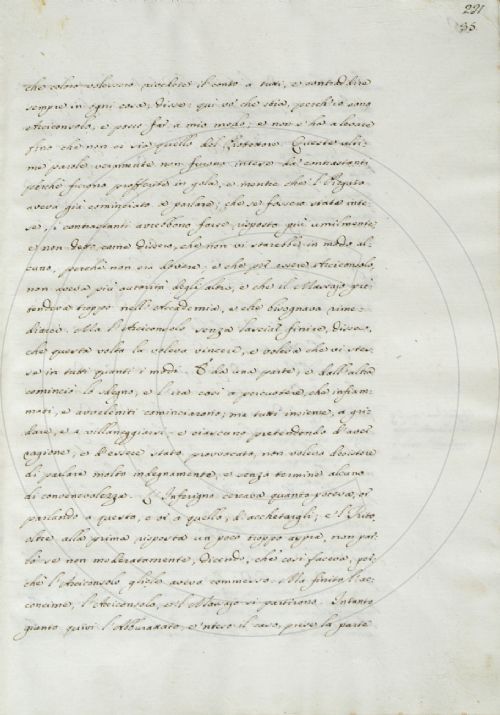 221
35
che coloro volessero rivedere il conto a tutti, e contraddire
sempre in ogni cosa, disse: qui vo' che stia, perch'io sono
Arciconsolo, e posso far a mio modo; e non s'ha a levare
fino che non ci sia quello del Protettore. Queste ulti-
me parole veramente non furono intese da' contrastanti
perchè furono profferite in gola, e mentre che l'
aveva già cominciato a parlare; che se fossero state inte-
se, i contrastanti avrebbono forse risposto più umilmente,
e non detto, come dissero, che non vi starebbe in modo al-
cuno, perchè non era dovere; e che per essere Arciconsolo,
non aveva più autorità degli altri, e che il Massajo pre-
tendeva troppo nell'Accademia, e che bisognava rime-
diarci. Ma l'Arciconsolo senza lasciar finire, disse,
che questa volta la voleva vincere, e voleva che vi stes-
se in tutti quanti i modi. E da una parte, e dall'altra
cominciò lo sdegno, e l'ira così a percuotere, che infiam-
mati, e avveleniti cominciarono, ma tutti insieme, a gri-
dare, e a villaneggiarsi: e ciascuno pretendendo d'aver
cagione, e d'essere stato provocato, non voleva desistere
di parlare molto indegnamente, e senza termine alcuno
di convenevolezza. L'Inferigno cercava quanto poteva, or
parlando a questo, e or a quello, d'acchetargli; e l'
oltre alla prima risposta un poco troppo aspra, non par-
lò se non moderatamente, dicendo, che così faceva, poi-
chè l'Arciconsolo gliele aveva commesso. Ma finito l'ac-
concime, l'Arciconsolo, e 'l Massajo si partirono. Intanto
giunto quivi l'Abburattato, e 'nteso il caso, prese la parte